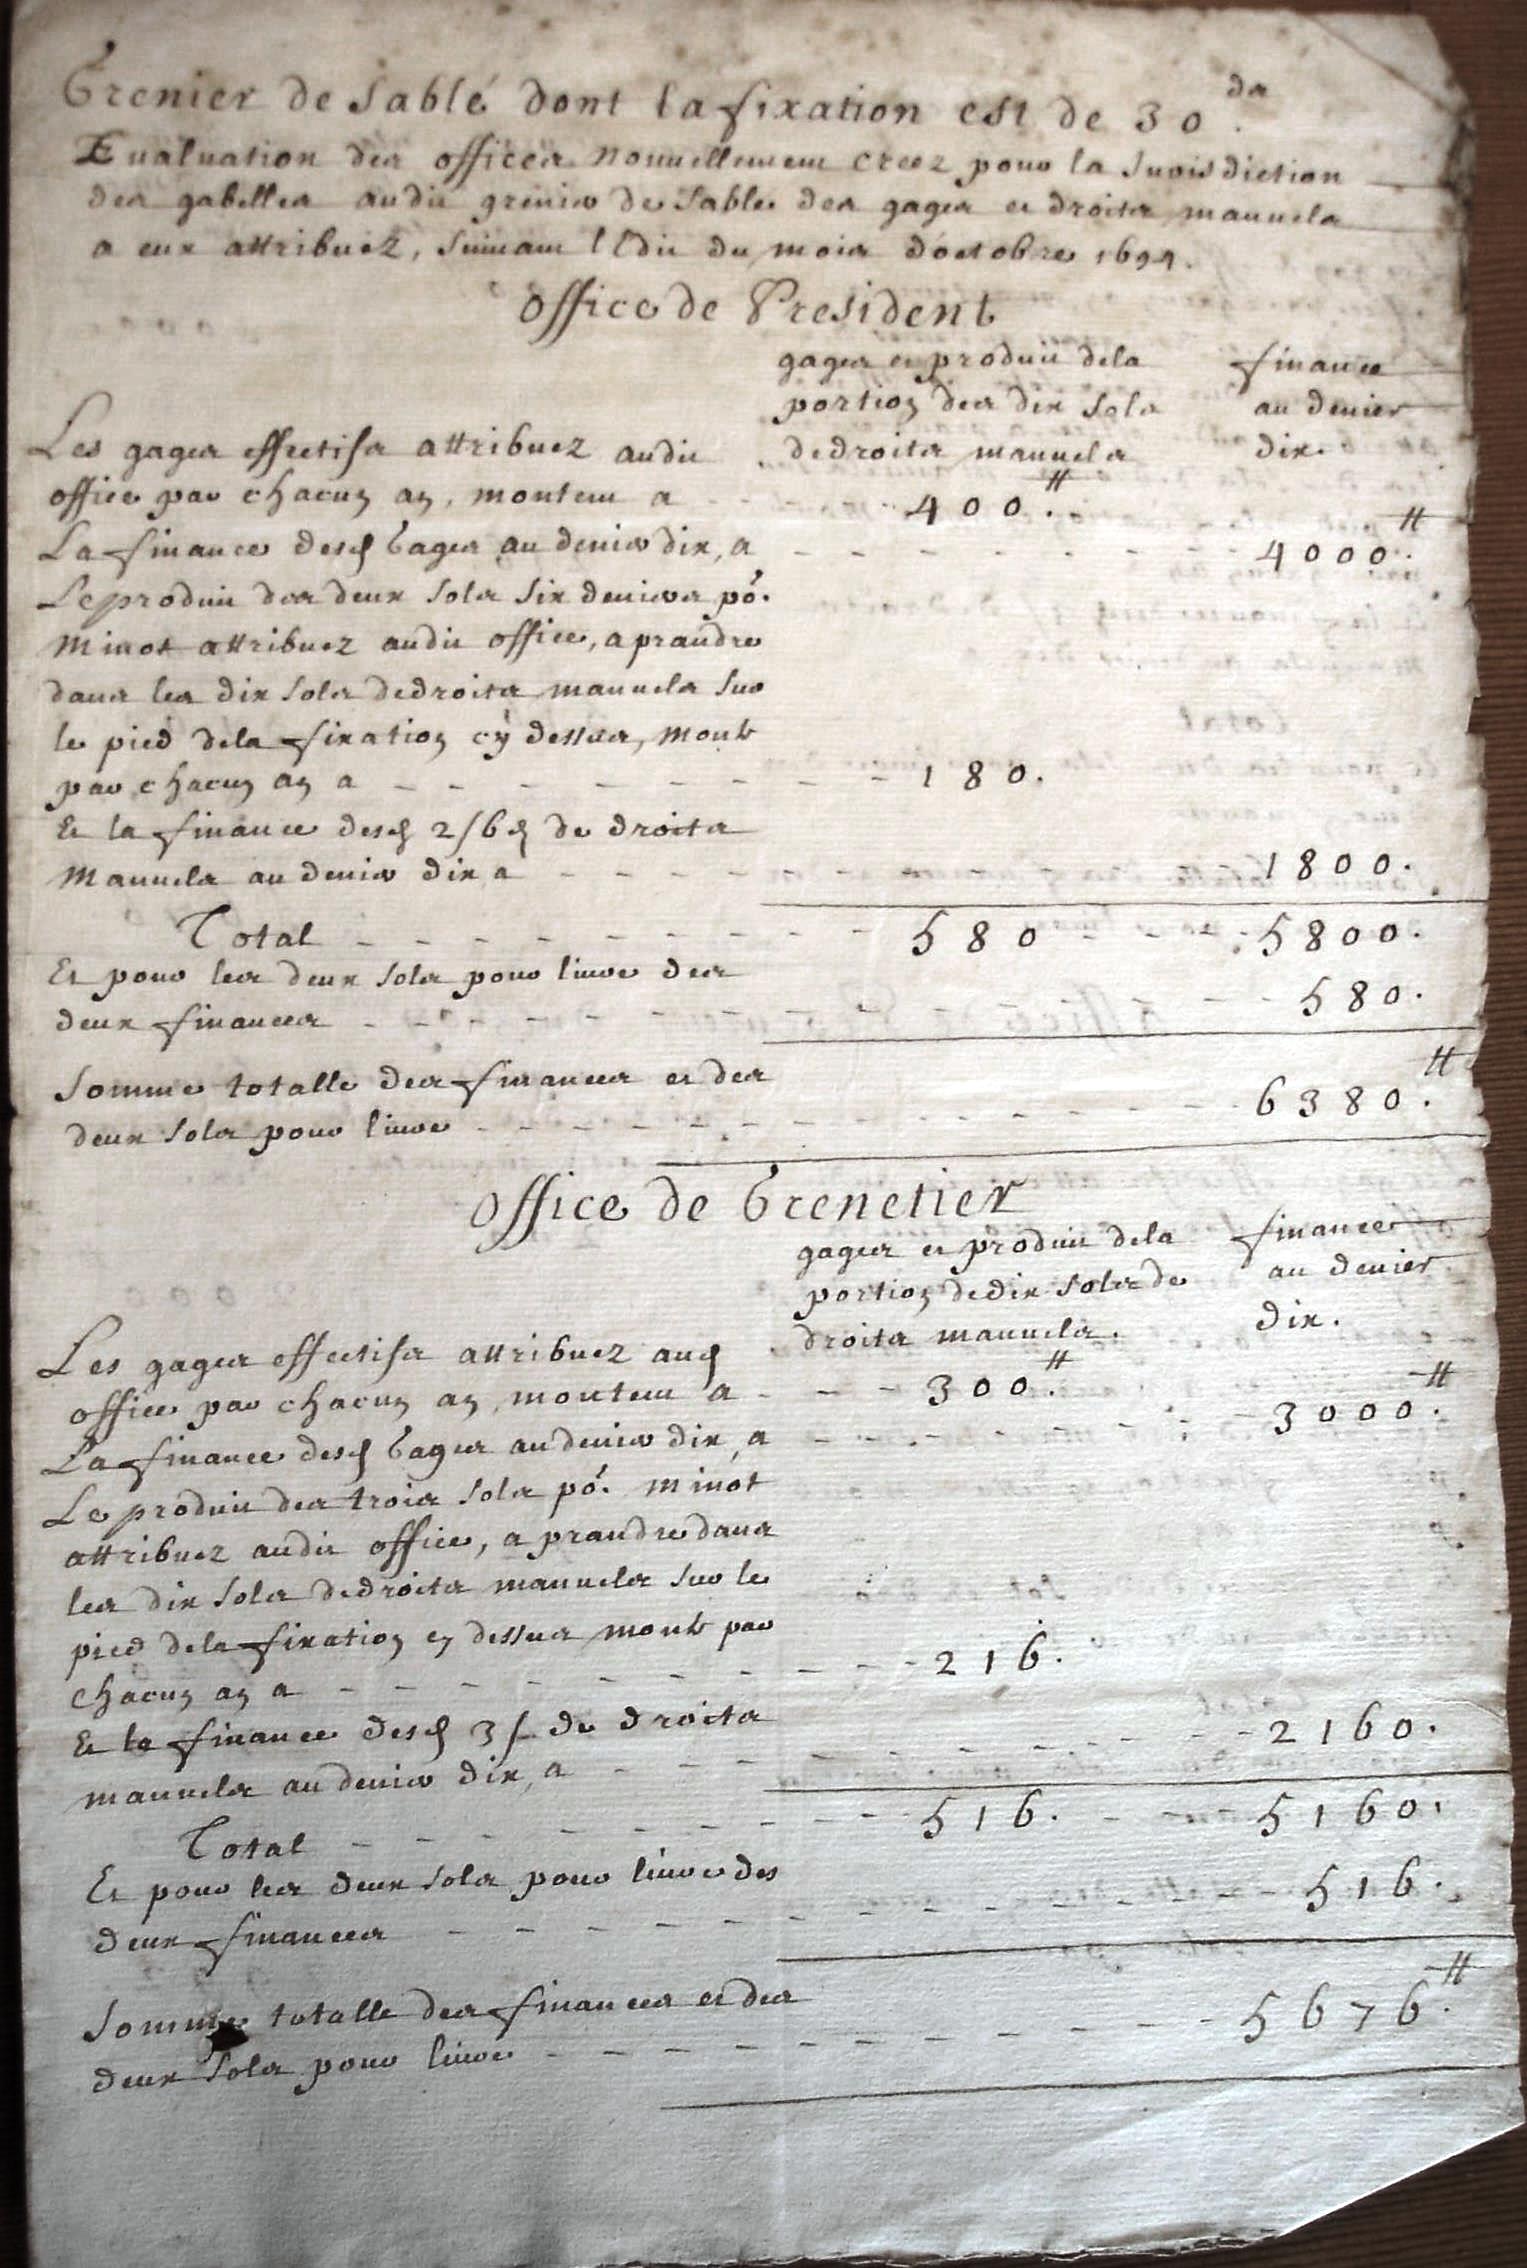 Grenier de Sablé dont la fixation est de 30 ds.
Evaluation des offices nouuellement creez pour la Jurisdiction
des gabelles audit grenier de Sablé des gages et droits manuels
a eux attribuez, suiuant l'Edit du mois d'octobre 1694.
Office de President
gages et produit de la
portion des dix sols
de droits manuels
finance
au denier
dix.
Les gages effectifs attribuez audit
office par chacun an, montent a - - - 400.tt
La finance desd Gages au denier dix, a - - - 4000.tt
Le produit des deux sols six deniers po.r
Minot attribuez audit office, a prandre
dans les dix sols de droits manuels sur
le pied de la fixation cÿ dessus, monte
par chacun an a - - - 180.
Et la finance desd 2s 6d de droits
Manuels au denier dix a - - - 1800.
Total - - - 580 - - - 5800.
Et pour les deux sols pour liure des
deux finances - - - 580.
Somme totalle des finances et des
deux sols pour liure - - - 6380.tt
Office de Grenetier
gages et produit de la
portion de dix sols de
droits manuels.
finances
au denier
dix.
Les gages effectifs attribuez aud
office par chacun an, montent a - - - 300.tt
La finance desd Gages au denier dix, a - - - 3000.tt
Le produit des trois sols po.r Minot
attribuez audit office, a prandre dans
les dix sols de droits manuels sur le
pied de la fixation cy dessus monte par
chacun an a - - - 216.
Et la finance desd 3s de droits
manuels au denier dix, a - - - 2160.
Total - - - 516. - - - 5160.
Et pour les deux sols pour liure des
deux finances - - - 516.
Somme totalle des finances et des
deux sols pour liure - - - 5676.tt